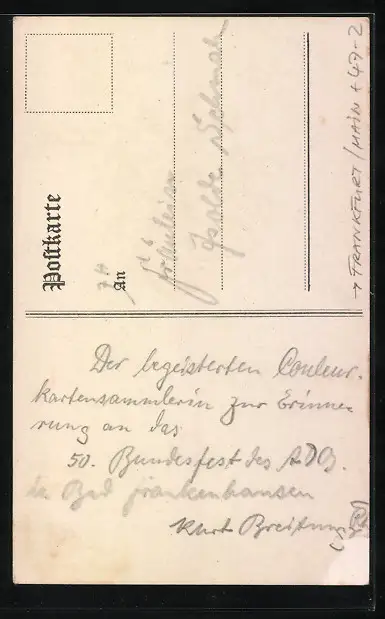 Postkarte
An
Fräulein
Isolde
→ FRANKFURT/MAIN + 49-2
Der begeisterten Couleur-
kartensammlerin zur Erinne-
rung an das
50. Bundesfest des ADB.
in Bad Frankenhausen
Kurt Breitung